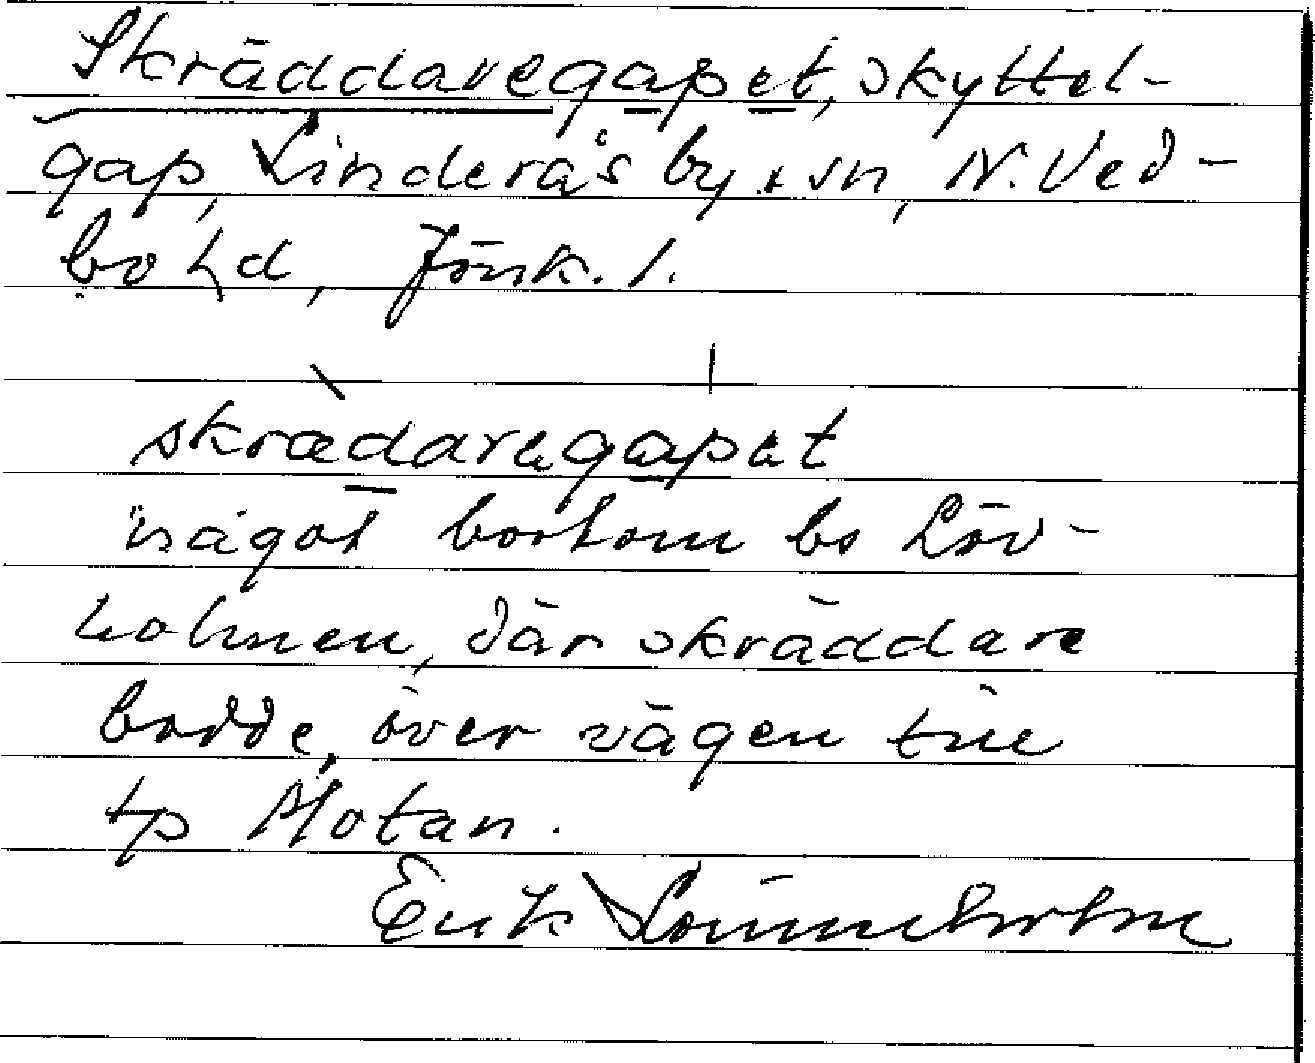 Skräddaregapet, skyttel-
gap, Linderås by + sn, N. Ved-
bo hd, Jönk. l.
skrædaregapet
något bortom bs Löv-
holmen, där skräddare
bodde, över vägen till
tp Motan.
Erik Lönnerholm